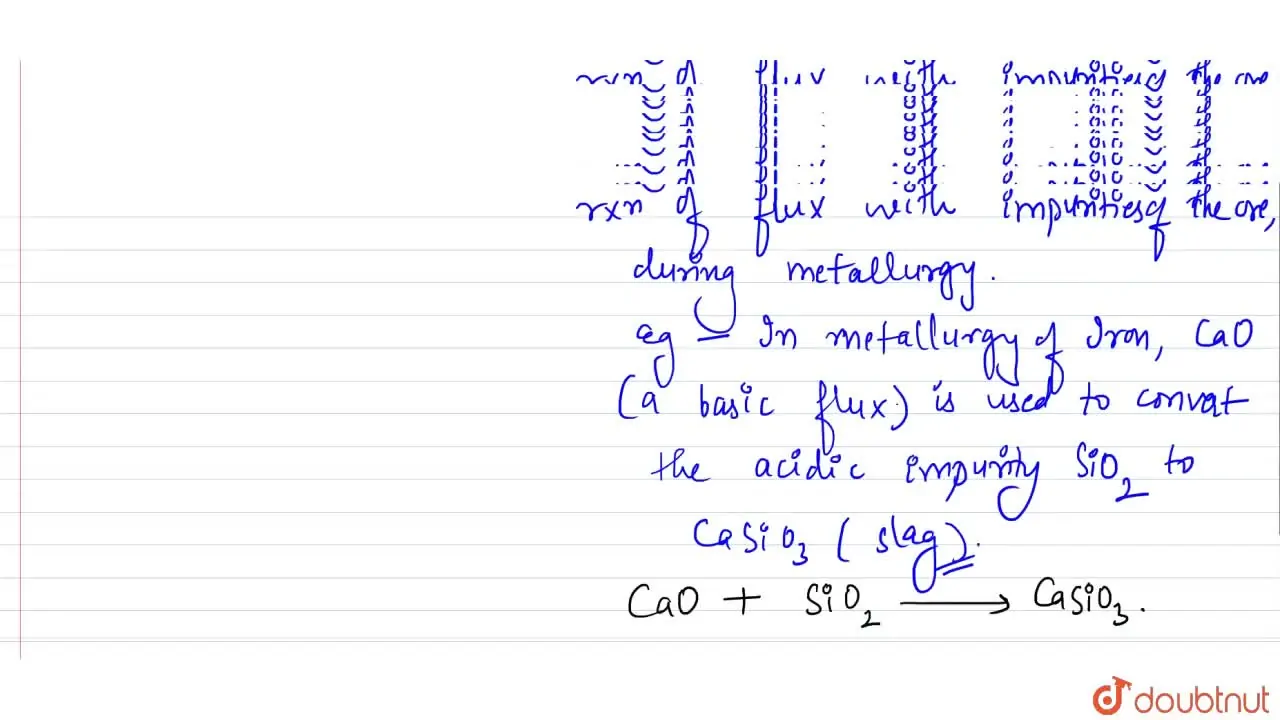 rxn of flux with impurities of the ore
rxn of flux with impurities of the ore,
during metallurgy.
eg – In metallurgy of Iron, CaO
(a basic flux) is used to convert
the acidic impurity SiO2 to
CaSiO3 (slag).
CaO + SiO2 ⟶ CaSiO3.
doubtnut